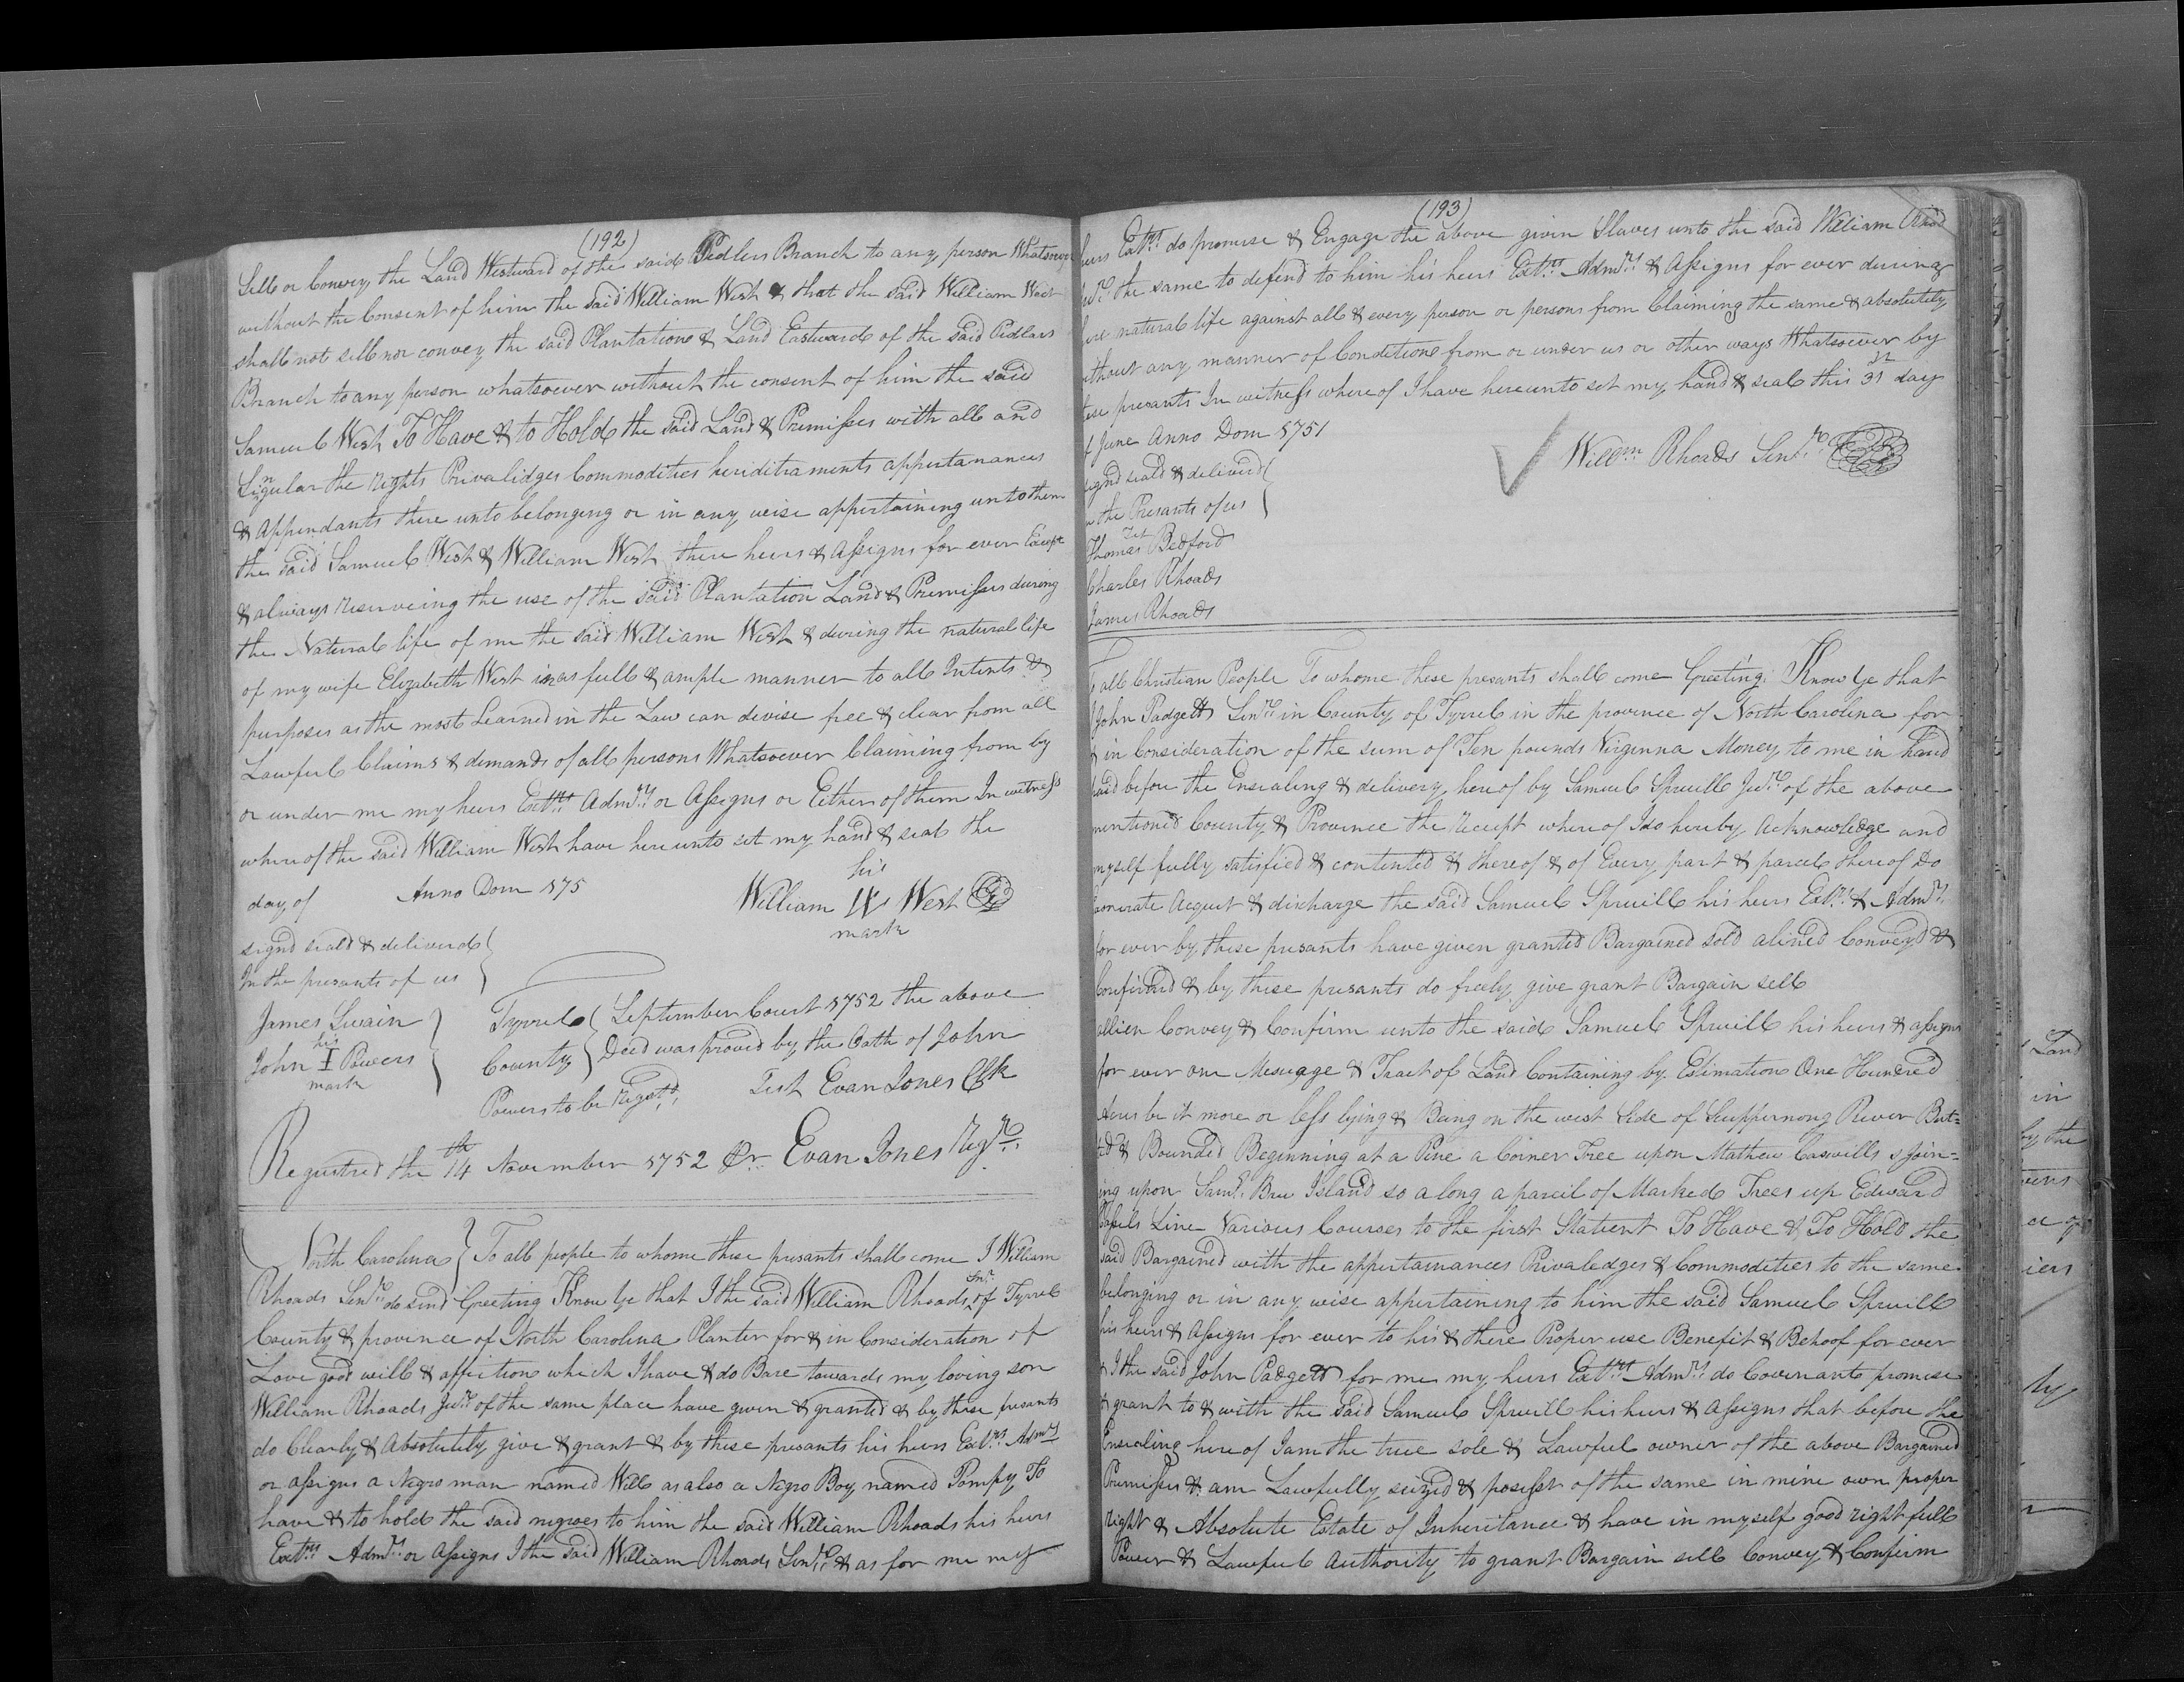 (192)
Sell or Convey the Land Westward of the said Pedlers Branch to any person Whatsoever
without the Consent of him the said William West & that the said William West
shall not sell nor convey the said Plantation & Land Eastward of the said Pedlars
Branch to any person whatsoever without the consent of him the said
Samuel West To Have & to Hold the said Land & Premisses with all and
Singular the Rights Privalidges Commodities heriditraments appertanances
& Appendants there unto belonging or in any weise appertaining unto them
the said Samuel West & William West there heirs & Assigns for ever Except
& always reserveing the use of the said Plantation Land & Premisses during
the Natural life of me the said William West & during the natural life
of my wife Elizabeth West in as full & ample manner to all Intents &
purposes as the most Learned in the Law can devise free & clear from all
Lawful Claims & demands of all persons Whatsoever Claiming from by
or under me my heirs Extrs Admrs or Assigns or Either of them In witness
where of the said William West have here unto set my hand & seal the
day of Anno Dom 175
his
William W West
mark
signd seald & deliverd
In the presants of us
James Swain
his
John I Powers
mark
Tyrrel County September Court 1752 the above
Deed was proved by the Oath of John
Powers to be Regstd. Test Evan Jones Clk
Registred the 14th November 1752 Pr Evan Jones Regr
North Carolina To all people to whome these presants shall come I William
Rhoads Senr do send Greeting Know Ye that I the said William Rhoads Snr of Tyrrel
County & province of North Carolina Planter for & in Consideration of
Love good will & affection which I have & do Bare towards my loving son
William Rhoads Junr of the same place have given & granted & by these presants
do Clearly & Absolutely give & grant & by these presants his heirs Extrs Admrs
or assigns a Negro man named Will as also a Negro Boy named Pompy To
have & to hold the said negroes to him the said William Rhoads his heirs
Extrs Admrs or Assigns I the said William Rhoads Senr & as for me my
(193)
heirs Extrs do promise & Engage the above given Slaves unto the said William Rhoad
Junr the same to defend to him his heirs Extrs Admrs & Assigns for ever during
there natural life against all & every person or persons from Claiming the same & absolutely
without any manner of Condition from or under us or other ways Whatsoever by
these presants In witness where of I have here unto set my hand & seal this 31st day
of June Anno Dom 1751
signd seald & deliverd
in the Presants of us
Willm Rhoads Senr
Test
Thomas Bedford
Charles Rhoads
James Rhoads
To all Christian People To whome these presants shall come Greeting: Know Ye that
I John Padgett Senr in County of Tyrrel in the province of North Carolina for
& in Consideration of the sum of Ten pounds Virginna Money to me in hand
paid before the Ensealing & delivery here of by Samuel Spruill Junr of the above
mentioned County & Province the receipt where of I do hereby Acknowledge and
myself fully satisfied & contented & there of & of Every part & parcel there of Do
Exonerate Acquit & discharge the said Samuel Spruill his heirs Extrs & Admrs
for ever by these presants have given granted Bargained sold aliened Conveyd &
Confirmd & by these presants do freely give grant Bargain sell
allien Convey & Confirm unto the said Samuel Spruill his heirs & assigns
for ever one Mesuage & Tract of Land Containing by Estimation One Hundred
Acres be it more or less lying & Being on the west Side of Scuppernong River But=
ted & Bounded Beginning at a Pine a Corner Tree upon Mathew Caswills ajoin=
ing upon Saml. Island so along a parcil of Marked Trees up Edward
Line Various Courses to the first Statient To Have & To Hold the
said Bargained with the appertainances Privaledges & Commodities to the same
belonging or in any wise appertaining to him the said Samuel Spruill
his heirs & Assigns for ever to his & there Proper use Benefit & Behoof for ever
& I the said John Padgett for me my heirs Extrs Admrs do Covenant promise
& grant to & with the said Samuel Spruill his heirs & Assigns that before the
Ensealing here of I am the true sole & Lawful owner of the above Bargained
Premisses & am Lawfully seized & posesst of the same in mine own proper
right & Absolute Estate of Inheritance & have in myself good right full
Power & Lawful Authority to grant Bargain sell Convey & Confirm
Land
in
by the